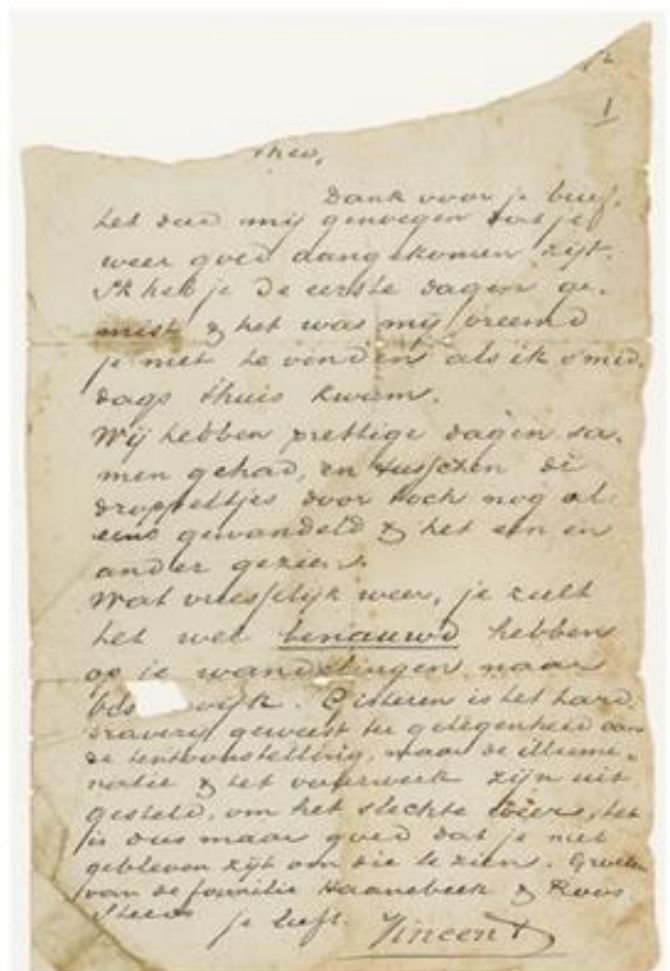 Theo,
Dank voor je brief,
het deed mij genoegen dat je
weer goed aangekomen zijt.
Ik heb je de eerste dagen ge-
mist & het was mij vreemd
je niet te vinden als ik s'mid-
dags t'huis kwam.
Wij hebben prettige dagen sa-
men gehad, en tusschen de
droppeltjes door toch nog al
eens gewandeld & het een en
ander gezien.
Wat vreesselijk weer, je zult
het wel benauwd hebben
op je wandelingen naar
wijk. Gisteren is het hard-
draverij geweest ter gelegenheid van
de tentoonstelling, maar de illumi-
natie & het vuurwerk zijn uit
gesteld, om het slechte weer, het
is dus maar goed dat je niet
gebleven zijt om die te zien. Groeten
van de familie Haanebeek & Roos
Steeds
je liefh. Vincent